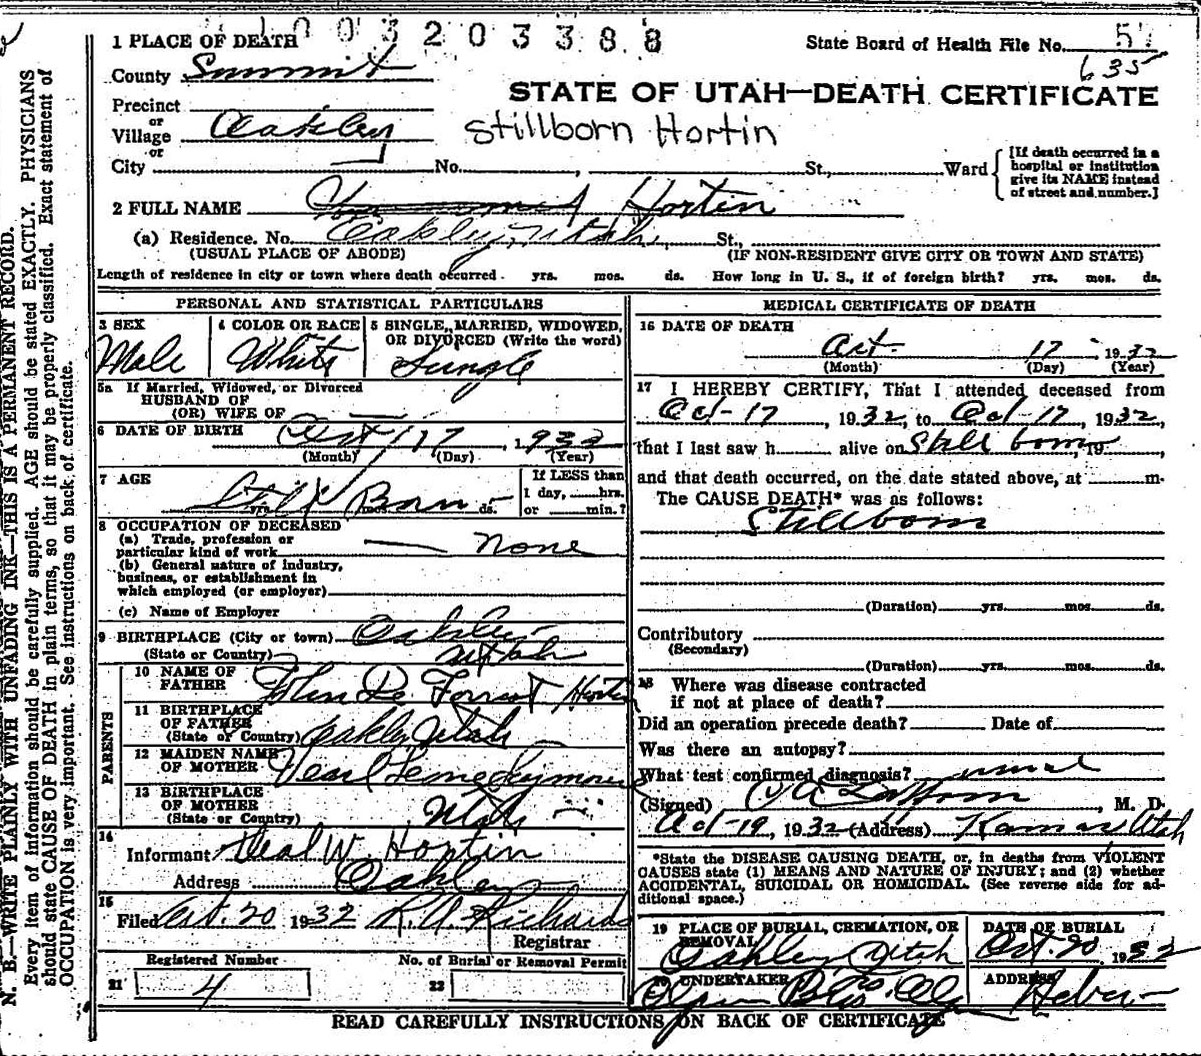 003203388
1 PLACE OF DEATH
State Board of Health File No. 57
635
County Summit
STATE OF UTAH—DEATH CERTIFICATE
Precinct
or
Village Oakley
Stillborn Hortin
or
City No. , St., Ward
[If death occurred in a hospital or institution give its NAME instead of street and number.]
2 FULL NAME Hortin
(a) Residence. No. Oakley, Utah, St.,
(USUAL PLACE OF ABODE) (IF NON-RESIDENT GIVE CITY OR TOWN AND STATE)
Length of residence in city or town where death occurred. yrs. mos. ds. How long in U. S., if of foreign birth? yrs. mos. ds.
PERSONAL AND STATISTICAL PARTICULARS
3 SEX Male
4 COLOR OR RACE White
5 SINGLE, MARRIED, WIDOWED, OR DIVORCED (Write the word) Single
5a If Married, Widowed, or Divorced
HUSBAND OF
(OR) WIFE OF
6 DATE OF BIRTH Oct 17 1932
(Month) (Day) (Year)
7 AGE Still Born
yrs. mos. ds.
If LESS than
1 day, hrs.
or min.?
8 OCCUPATION OF DECEASED
(a) Trade, profession or
particular kind of work — none
(b) General nature of industry,
business, or establishment in
which employed (or employer)
(c) Name of Employer
9 BIRTHPLACE (City or town) Oakley
(State or Country) Utah
PARENTS
10 NAME OF
FATHER John De Forrest Hortin
11 BIRTHPLACE
OF FATHER
(State or Country) Oakley Utah
12 MAIDEN NAME
OF MOTHER Pearl Leone Seymour
13 BIRTHPLACE
OF MOTHER
(State or Country) Utah
14
Informant Deal W. Hortin
Address Oakley
15
Filed Oct. 20 1932 R.A. Richards
Registrar
Registered Number No. of Burial or Removal Permit
21 4 22
MEDICAL CERTIFICATE OF DEATH
16 DATE OF DEATH
Oct. 17 1932
(Month) (Day) (Year)
17 I HEREBY CERTIFY, That I attended deceased from
Oct-17, 1932, to Oct-17, 1932,
that I last saw h alive on Still born, 19 ,
and that death occurred, on the date stated above, at m.
The CAUSE DEATH* was as follows:
Stillborn
(Duration) yrs. mos. ds.
Contributory
(Secondary)
(Duration) yrs. mos. ds.
18 Where was disease contracted
if not at place of death?
Did an operation precede death? Date of
Was there an autopsy?
What test confirmed diagnosis? usual
(Signed) , M. D.
Oct-19, 1932 (Address) Kamas Utah
*State the DISEASE CAUSING DEATH, or, in deaths from VIOLENT
CAUSES state (1) MEANS AND NATURE OF INJURY; and (2) whether
ACCIDENTAL, SUICIDAL OR HOMICIDAL. (See reverse side for ad-
ditional space.)
19 PLACE OF BURIAL, CREMATION, OR
REMOVAL Oakley Utah
DATE OF BURIAL
Oct-20, 1932
20 UNDERTAKER Bros.
ADDRESS Heber
READ CAREFULLY INSTRUCTIONS ON BACK OF CERTIFICATE
N. B.—WRITE PLAINLY WITH UNFADING INK—THIS IS A PERMANENT RECORD.
Every item of information should be carefully supplied. AGE should be stated EXACTLY. PHYSICIANS
should state CAUSE OF DEATH in plain terms, so that it may be properly classified. Exact statement of
OCCUPATION is very important. See instructions on back of certificate.